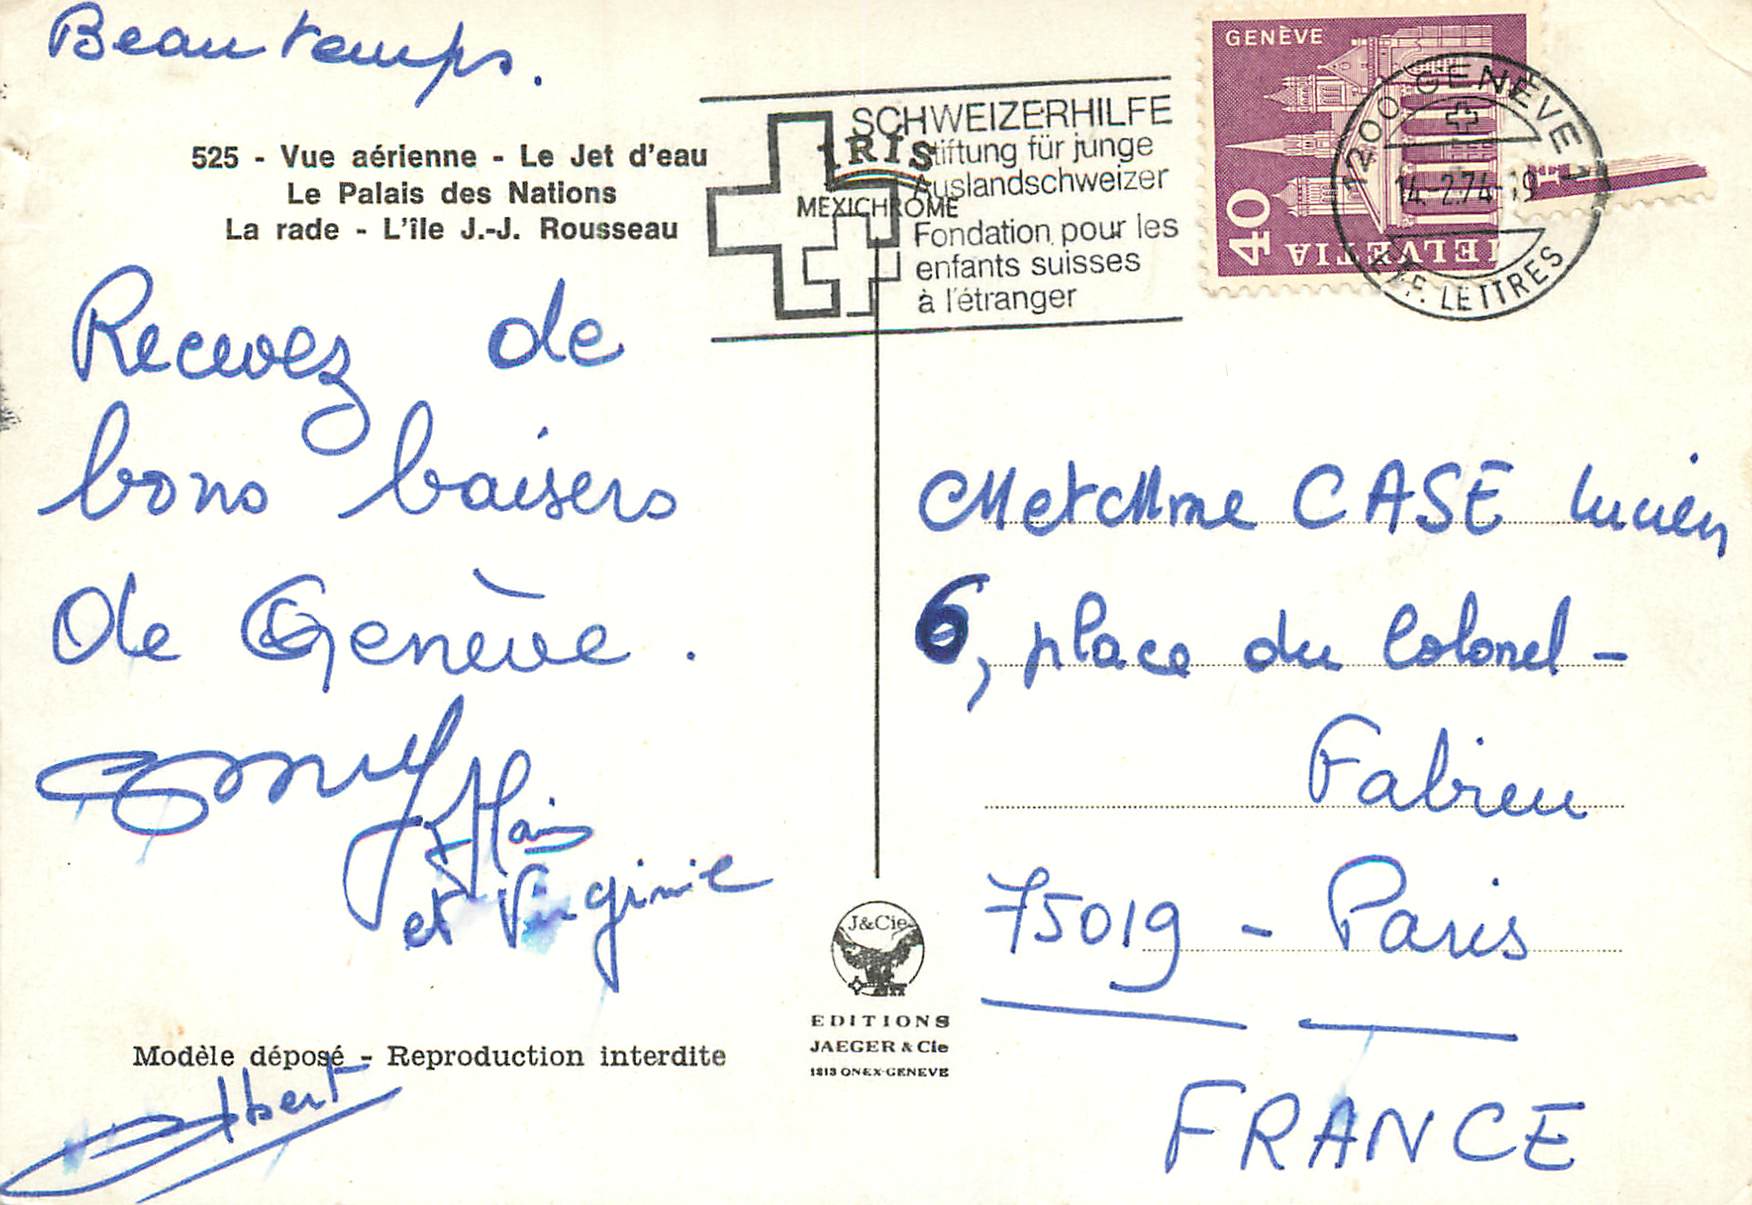 Beau temps.
525 - Vue aérienne - Le Jet d'eau
Le Palais des Nations
La rade - L'île J.-J. Rousseau
Recevez de
bons baisers
de Genève.
Alain
et Virginie
Modèle déposé - Reproduction interdite
Albert
IRIS
MEXICHROME
SCHWEIZERHILFE
Stiftung für junge
Auslandschweizer
Fondation pour les
enfants suisses
à l'étranger
GENÈVE
40
HELVETIA
1200 GENÈVE 1
14.-2.74-19
EXP. LETTRES
M et Mme CASE Lucien
6, place du Colonel -
Fabien
75019 - Paris
FRANCE
J&Cie
EDITIONS
JAEGER & Cie
1213 ONEX-GENEVE